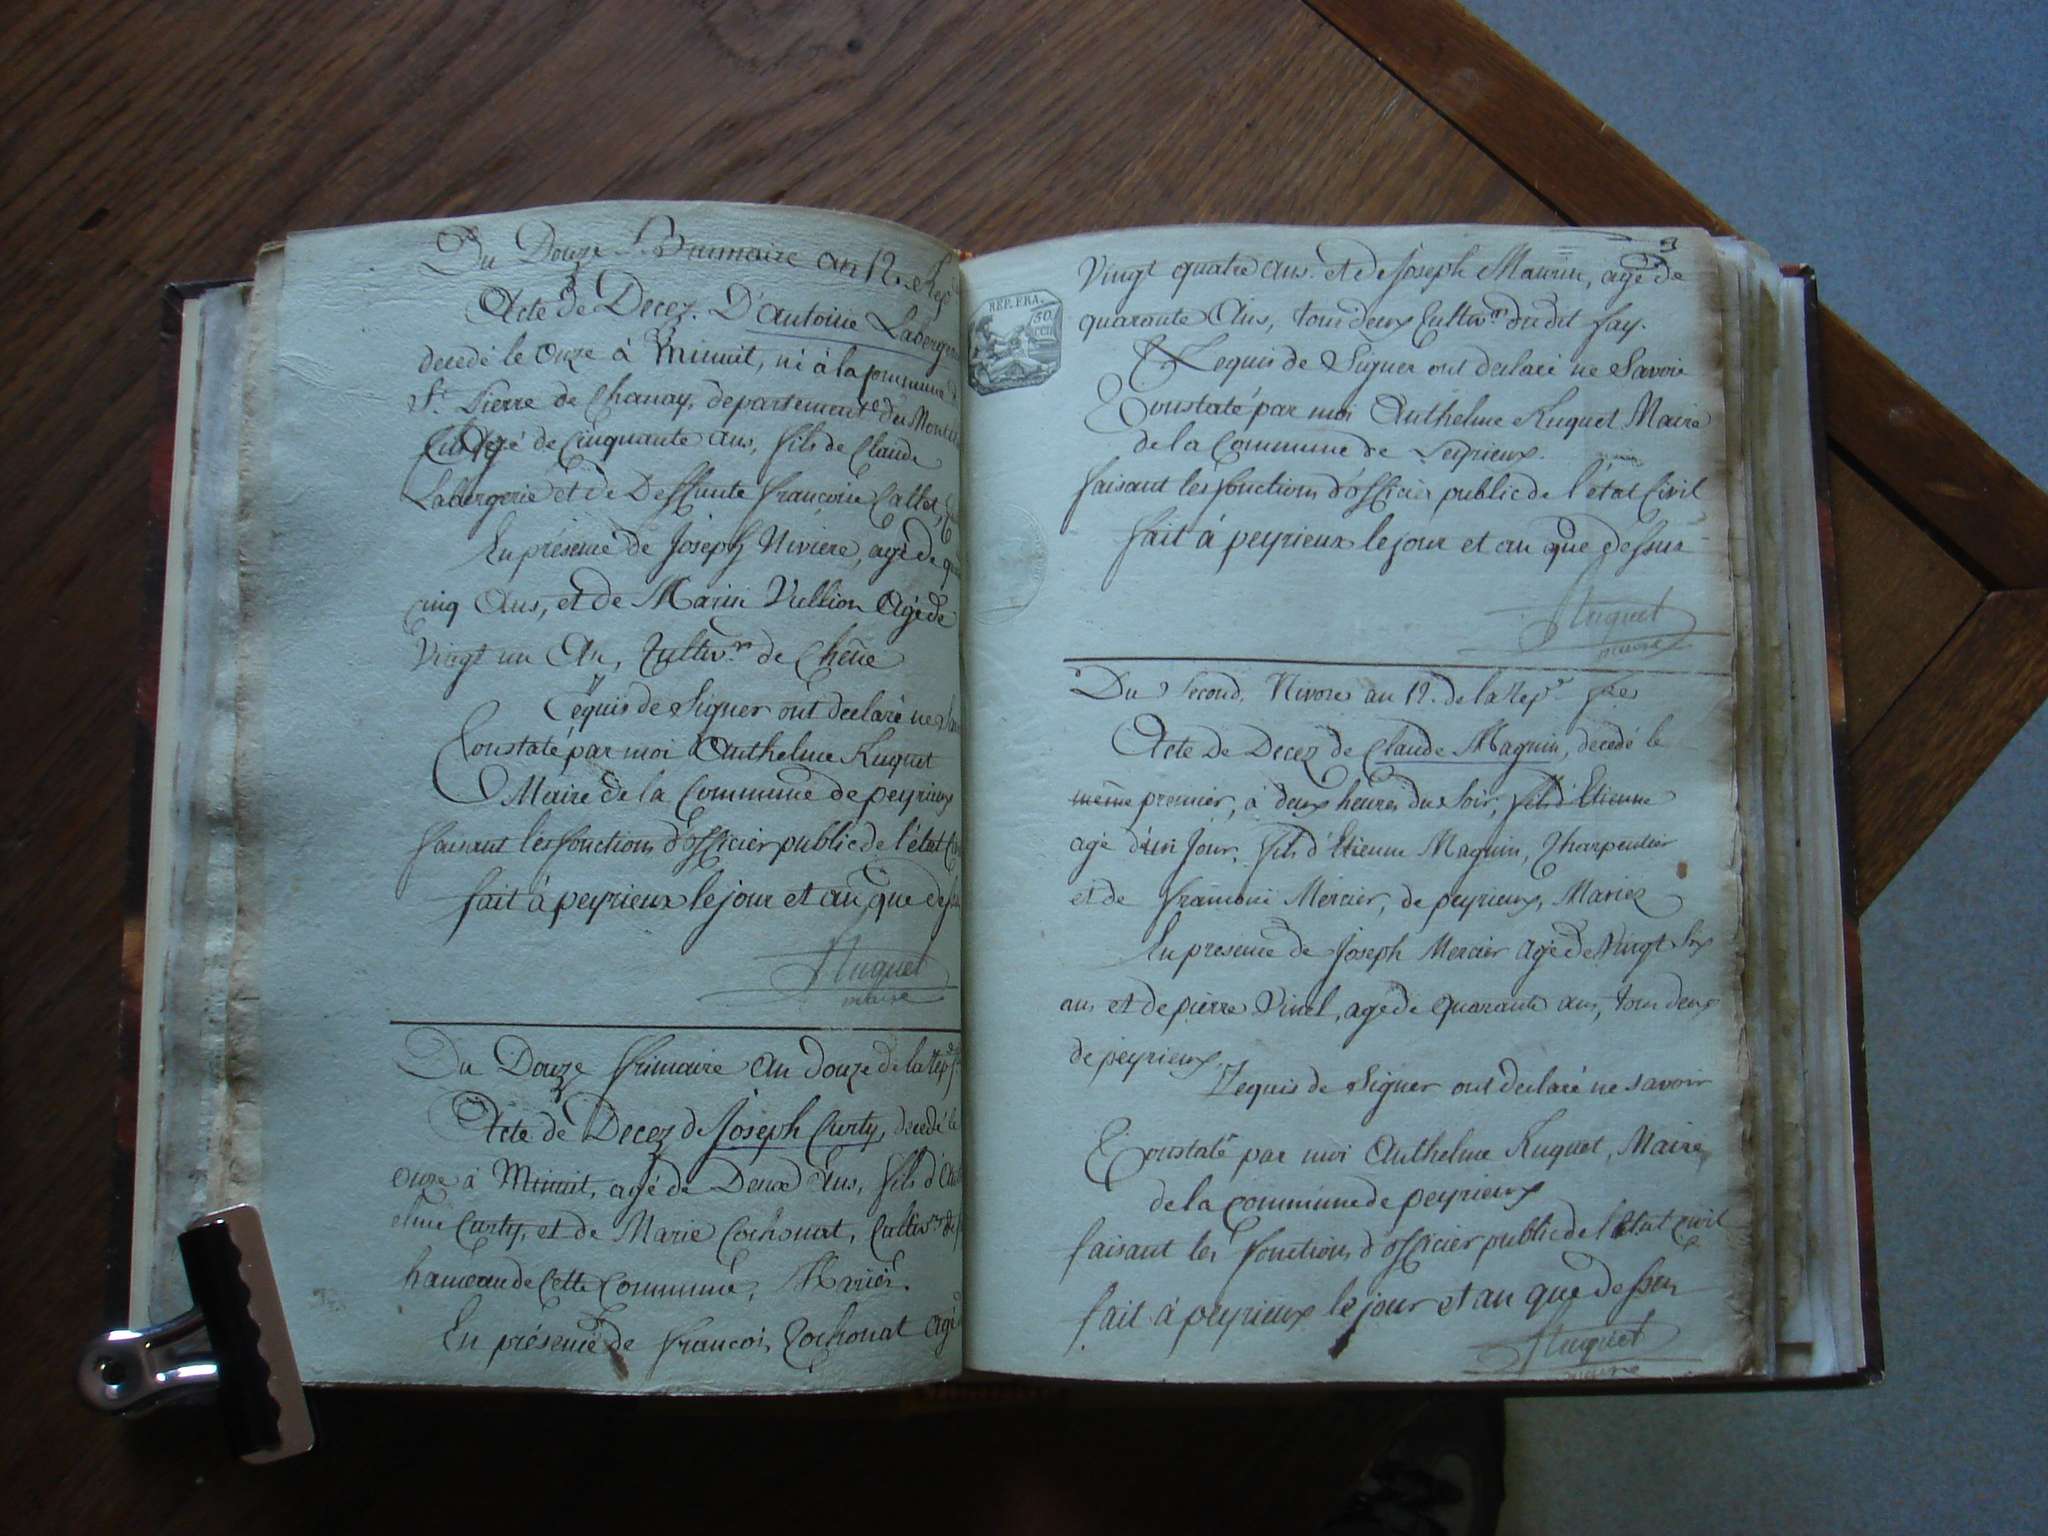 Du Douze Brumaire an 12. Rep
Acte de Decez. D'Antoine Labergerie
decedé le onze à Minuit, né à la commune de
St. Pierre de Chanay, departement du Mont
agé de Cinquante ans, fils de Claude
Labergerie et de Deffunte francoise Callet,
En présence de Joseph Niviere, agé de
cinq Ans, et de Marin Vullion Agé de
Vingt un An, Cultiv.rs de Chêne
Requis de Signer ont declaré ne
Constaté par moi Anthelme Huguet
Maire de la Commune de peyrieux
faisant les fonctions d'officier public de l'état
fait à peyrieux le jour et an que dessus
Huguet
maire
Du Douze frimaire an douze de la Rep
Acte de Decez de Joseph Curty, decedé le
onze à Minuit, agé de Deux Ans, fils d'An
elme Curty, et de Marie Cochonat, Cultiv.rs
hameau de Cette Commune, Mariés.
En présence de francois Cochonat agé
3
REP. FRA.
50
CEN
Vingt quatre ans. et de Joseph Maurin, agé de
quarante Ans, tous deux Cultiv.rs du dit fay.
Requis de Signer ont declaré ne Savoir
Constaté par moi Anthelme Huguet Maire
de la Commune de Peyrieux.
faisant les fonctions d'officier public de l'état Civil
fait à peyrieux le jour et an que dessus
Huguet
maire
Du Second. Nivose an 12. de la Rep.
Acte de Decez de Claude Magnin, decedé le
même premier, à deux heures du Soir, fils d'Etienne
agé d'un Jour, fils d'Etienne Magnin, Charpentier
et de francoise Mercier, de peyrieux, Mariez
En presence de Joseph Mercier agé de Vingt Six
ans et de pierre Vinet, agé de quarante ans, tous deux
de peyrieux.
Requis de Signer ont declaré ne savoir
Constaté par moi Anthelme Huguet, Maire
de la commune de peyrieux
faisant les fonctions d'officier public de l'état civil
fait à peyrieux le jour et an que dessus
Huguet
maire